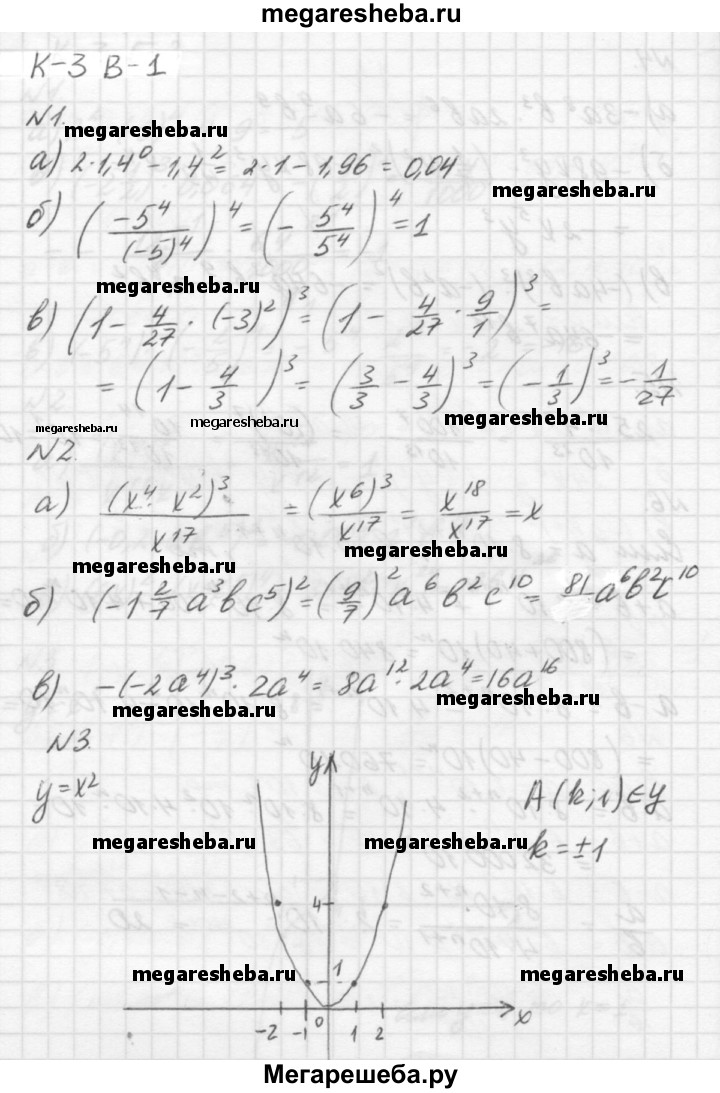 megaresheba.ru
К-3 В-1
№1.
megaresheba.ru
а) 2·1,4⁰ - 1,4² = 2·1 - 1,96 = 0,04
megaresheba.ru
б) (-5⁴/(-5)⁴)⁴ = (- 5⁴/5⁴)⁴ = 1
megaresheba.ru
в) (1 - 4/27 · (-3)²)³ = (1 - 4/27 · 9/1)³ =
= (1 - 4/3)³ = (3/3 - 4/3)³ = (-1/3)³ = -1/27
megaresheba.ru megaresheba.ru megaresheba.ru
№2.
а) (x⁴ · x²)³/x¹⁷ = (x⁶)³/x¹⁷ = x¹⁸/x¹⁷ = x
megaresheba.ru
megaresheba.ru
б) (-1 2/7 a³bc⁵)² = (9/7)² a⁶b²c¹⁰ = 81 a⁶b²c¹⁰
в) -(-2a⁴)³ · 2a⁴ = 8a¹² · 2a⁴ = 16a¹⁶
megaresheba.ru
megaresheba.ru
№3.
y = x²
y
A(k;1) ∈ y
megaresheba.ru megaresheba.ru
k = ±1
4
1
megaresheba.ru megaresheba.ru
-2 -1 0 1 2 x
Мегарешеба.ру